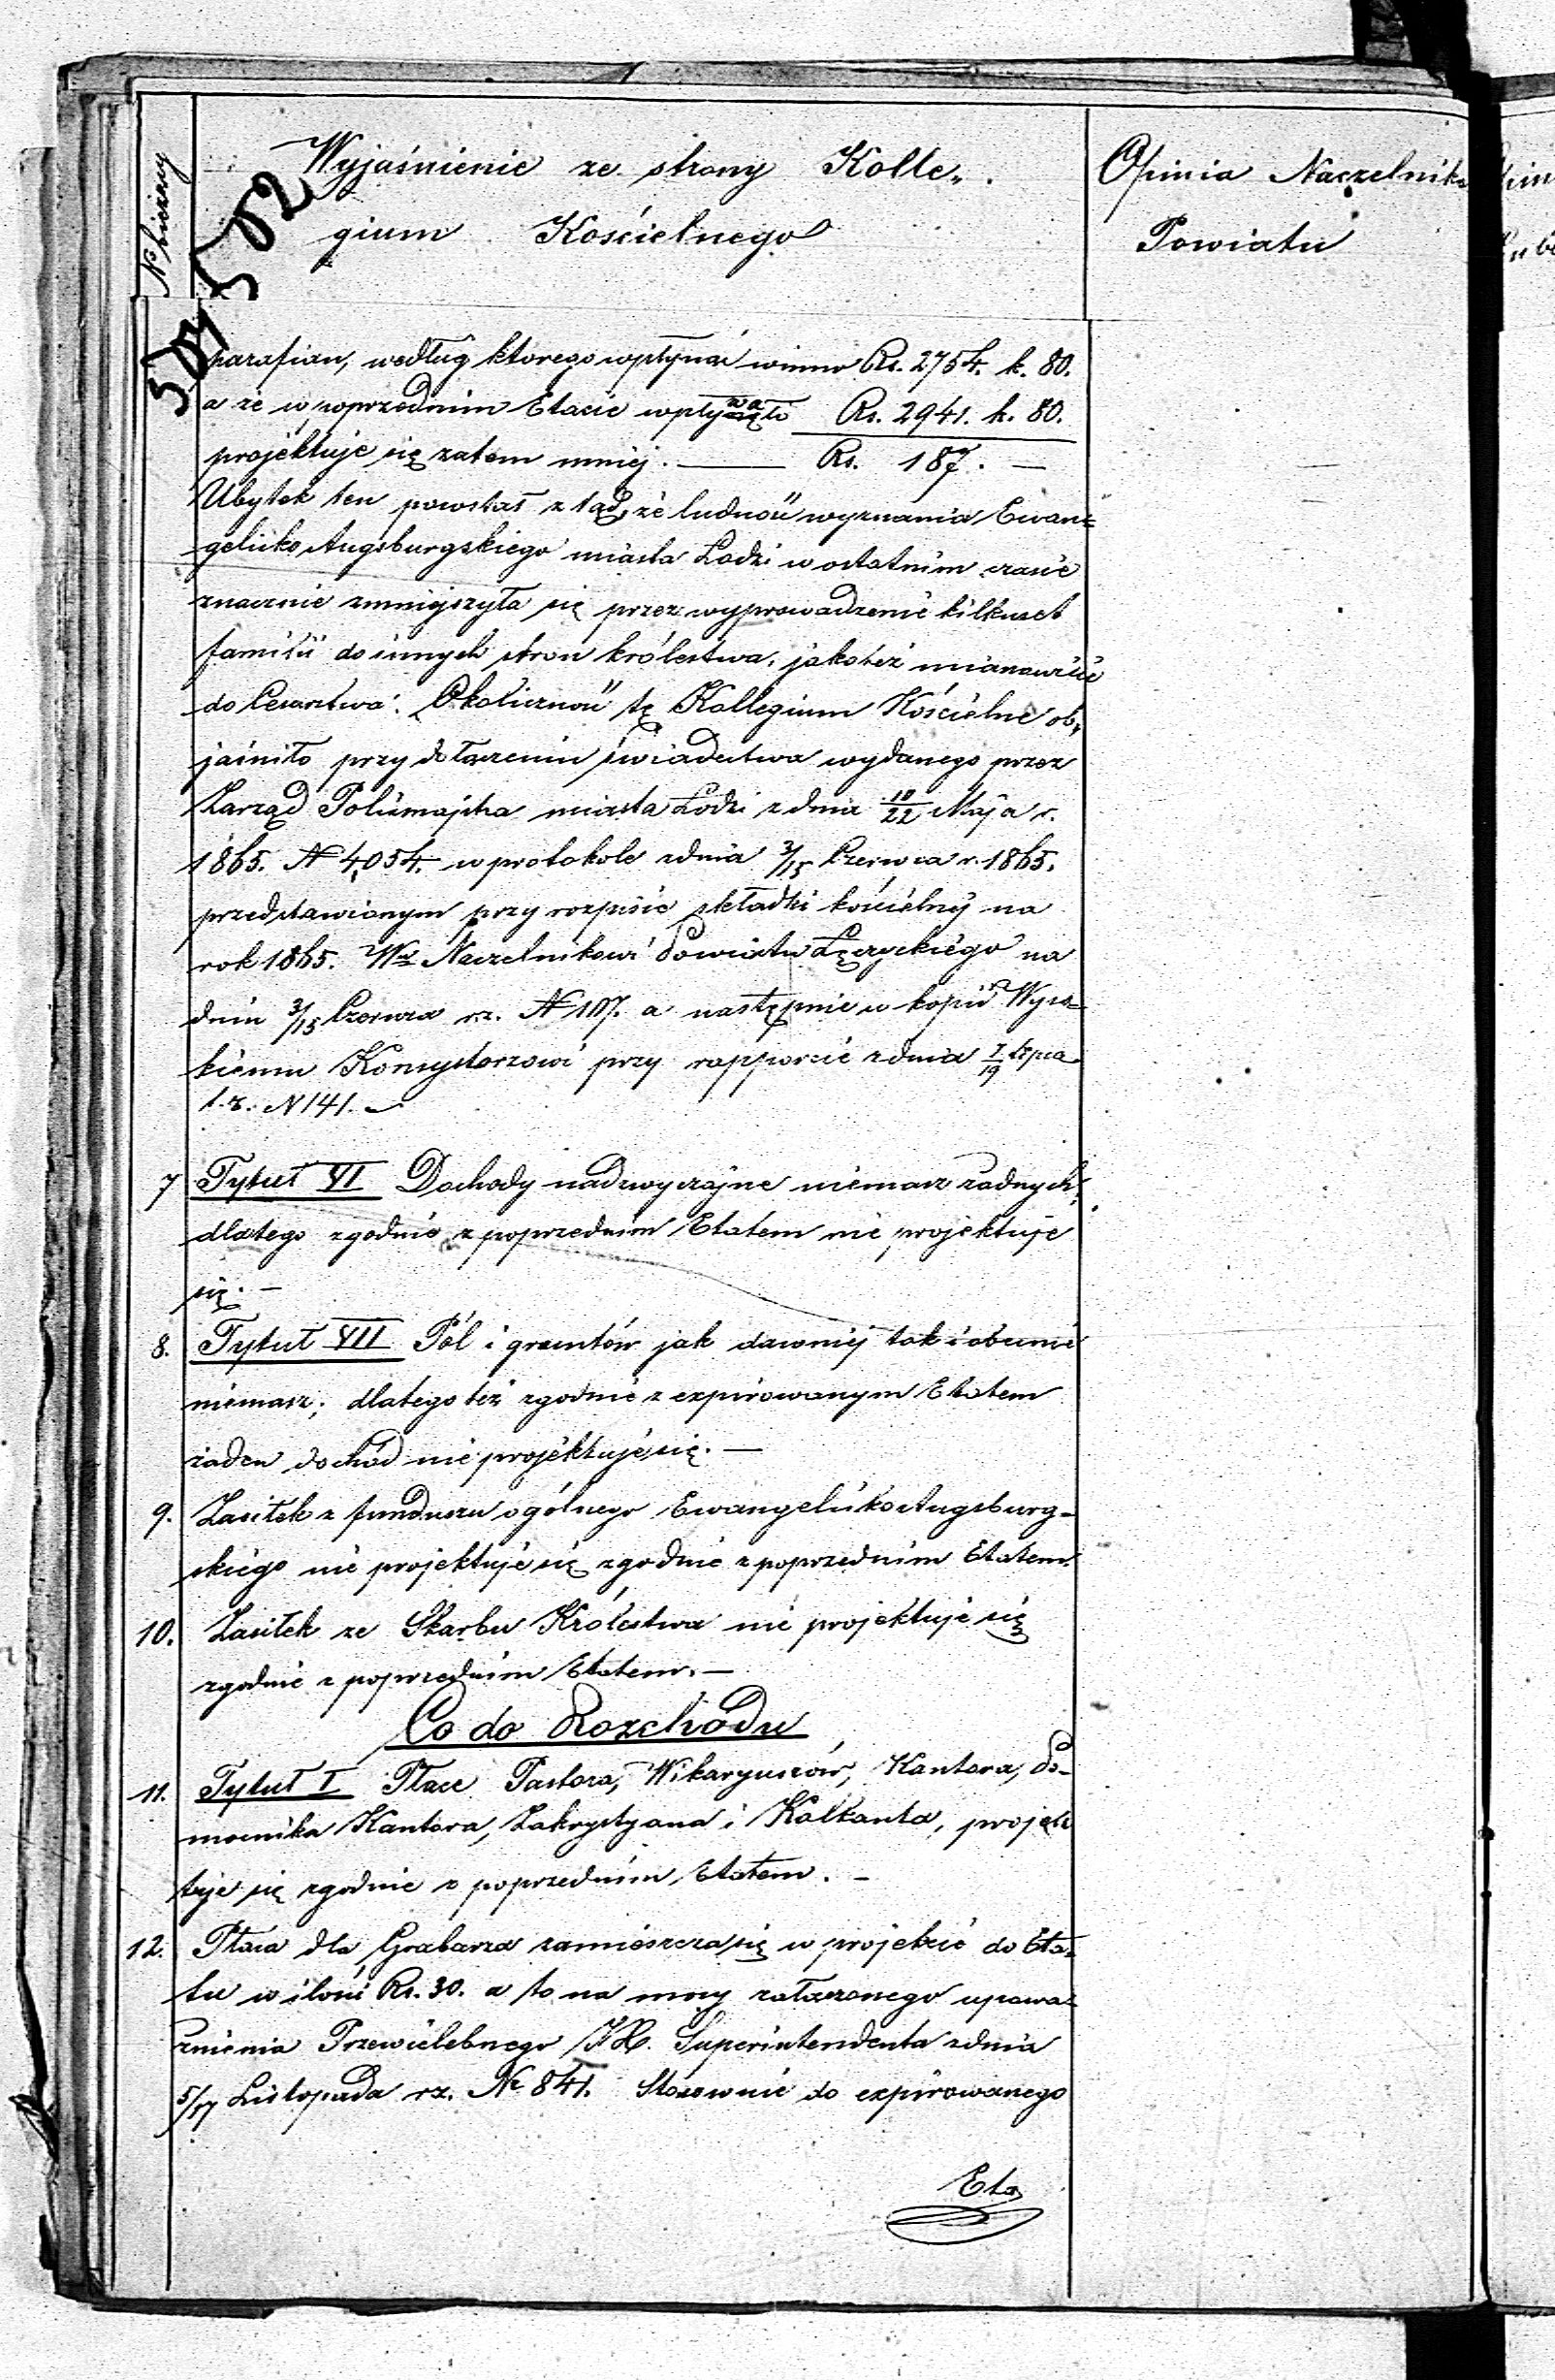 N bieżący
Wyjaśnienie ze strony Kolle„
gium Kościelnego
Opinia Naczelnika
Powiatu
502
parafian, według ktorego wpłynąć winno Rs. 2754. k. 80.
a że w poprzednim Etacie wpływało Rs. 2941. k. 80.
projektuje się zatem mniej. — Rs. 187. —
Ubytek ten powstał z tąd, że ludność wyznania Ewan=
gelicko Augsburgskiego miasta Łodzi w ostatnim czasie
znacznie zmniejszyła się przez wyprowadzenie kilkuset
familii do innych stron królestwa, jakoteż mianowicie
do Cesarstwa. Okoliczność tę Kollegium Kościelne ob„
jaśniło przy dołączeniu świadectwa wydanego przez
Zarząd Policmajstra miasta Łodzi z dnia 10/22 Maja r.
1865. N 4,054. w protokole zdnia 3/15 Czerwca r. 1865.
przedstawionym przy rozpisie składki kościelnéj na
rok 1865. Wu Naczelnikowi Powiatu Łęczyckiego na
dniu 3/15 Czerwca r.z. N 107. a następnie w kopii Wyso=
kiemu Konsystorzowi przy rapporcie zdnia 7/19 Lipca
t. r. N 141. —
7 Tytuł VI Dochody nadzwyczajne niemasz żadnych,
dlatego zgodnie z poprzednim Etatem nie projektuje
się. —
8. Tytuł VII Pól i gruntów jak dawniéj tak i obecnie
niemasz; dlatego też zgodnie z expirowanym Etatem
żaden dochód nie projektuje się. —
9. Zasiłek z funduszu ogólnego Ewangelicko Augsburg=
skiego nie projektuje się zgodnie z poprzednim Etatem.
10. Zasiłek ze Skarbu Królestwa nie projektuje się
zgodnie z poprzednim Etatem. —
Co do Rozchodu
11. Tytuł I Płace Pastora, Wikaryuszów, Kantora, Po=
mocnika Kantora, Zakrystyana i Kalkanta, projek
tuje się zgodnie z poprzednim Etatem. —
12. Płaca dla Grabarza zamieszcza się w projekcie do Eta=
tu w ilości Rs. 30. a to na mocy załączonego upowa=
żnienia Przewielebnego Superintendenta zdnia
5/17 Listopada r.z. No 841. Stosownie do expirowanego
Eta